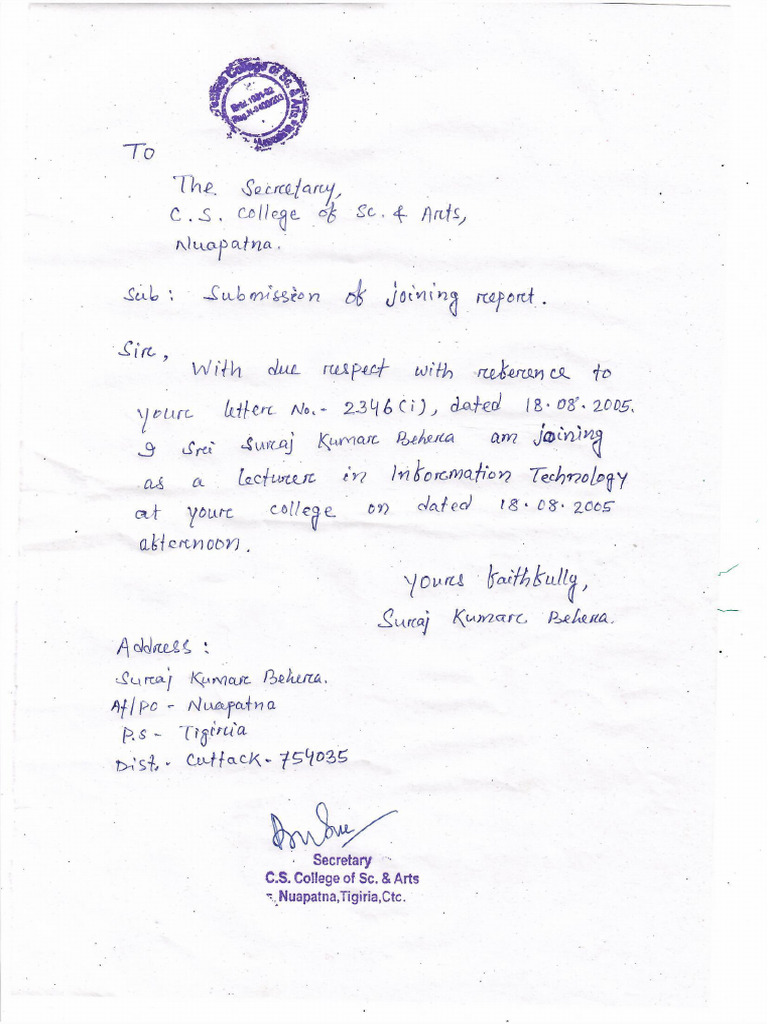 College of Sc. & Arts
To
The Secretary,
C.S. College of Sc. & Arts,
Nuapatna.
Sub: Submission of joining report.
Sir,
With due respect with reference to
your letter No.- 2346(i), dated 18.08.2005.
I Sri Suraj Kumar Behera am joining
as a lecturer in Information Technology
at your college on dated 18.08.2005
afternoon.
Yours faithfully,
Suraj Kumar Behera.
Address:
Suraj Kumar Behera.
At/Po - Nuapatna
P.S - Tigiria
Dist. - Cuttack - 754035
Secretary
C.S. College of Sc. & Arts
Nuapatna,Tigiria,Ctc.